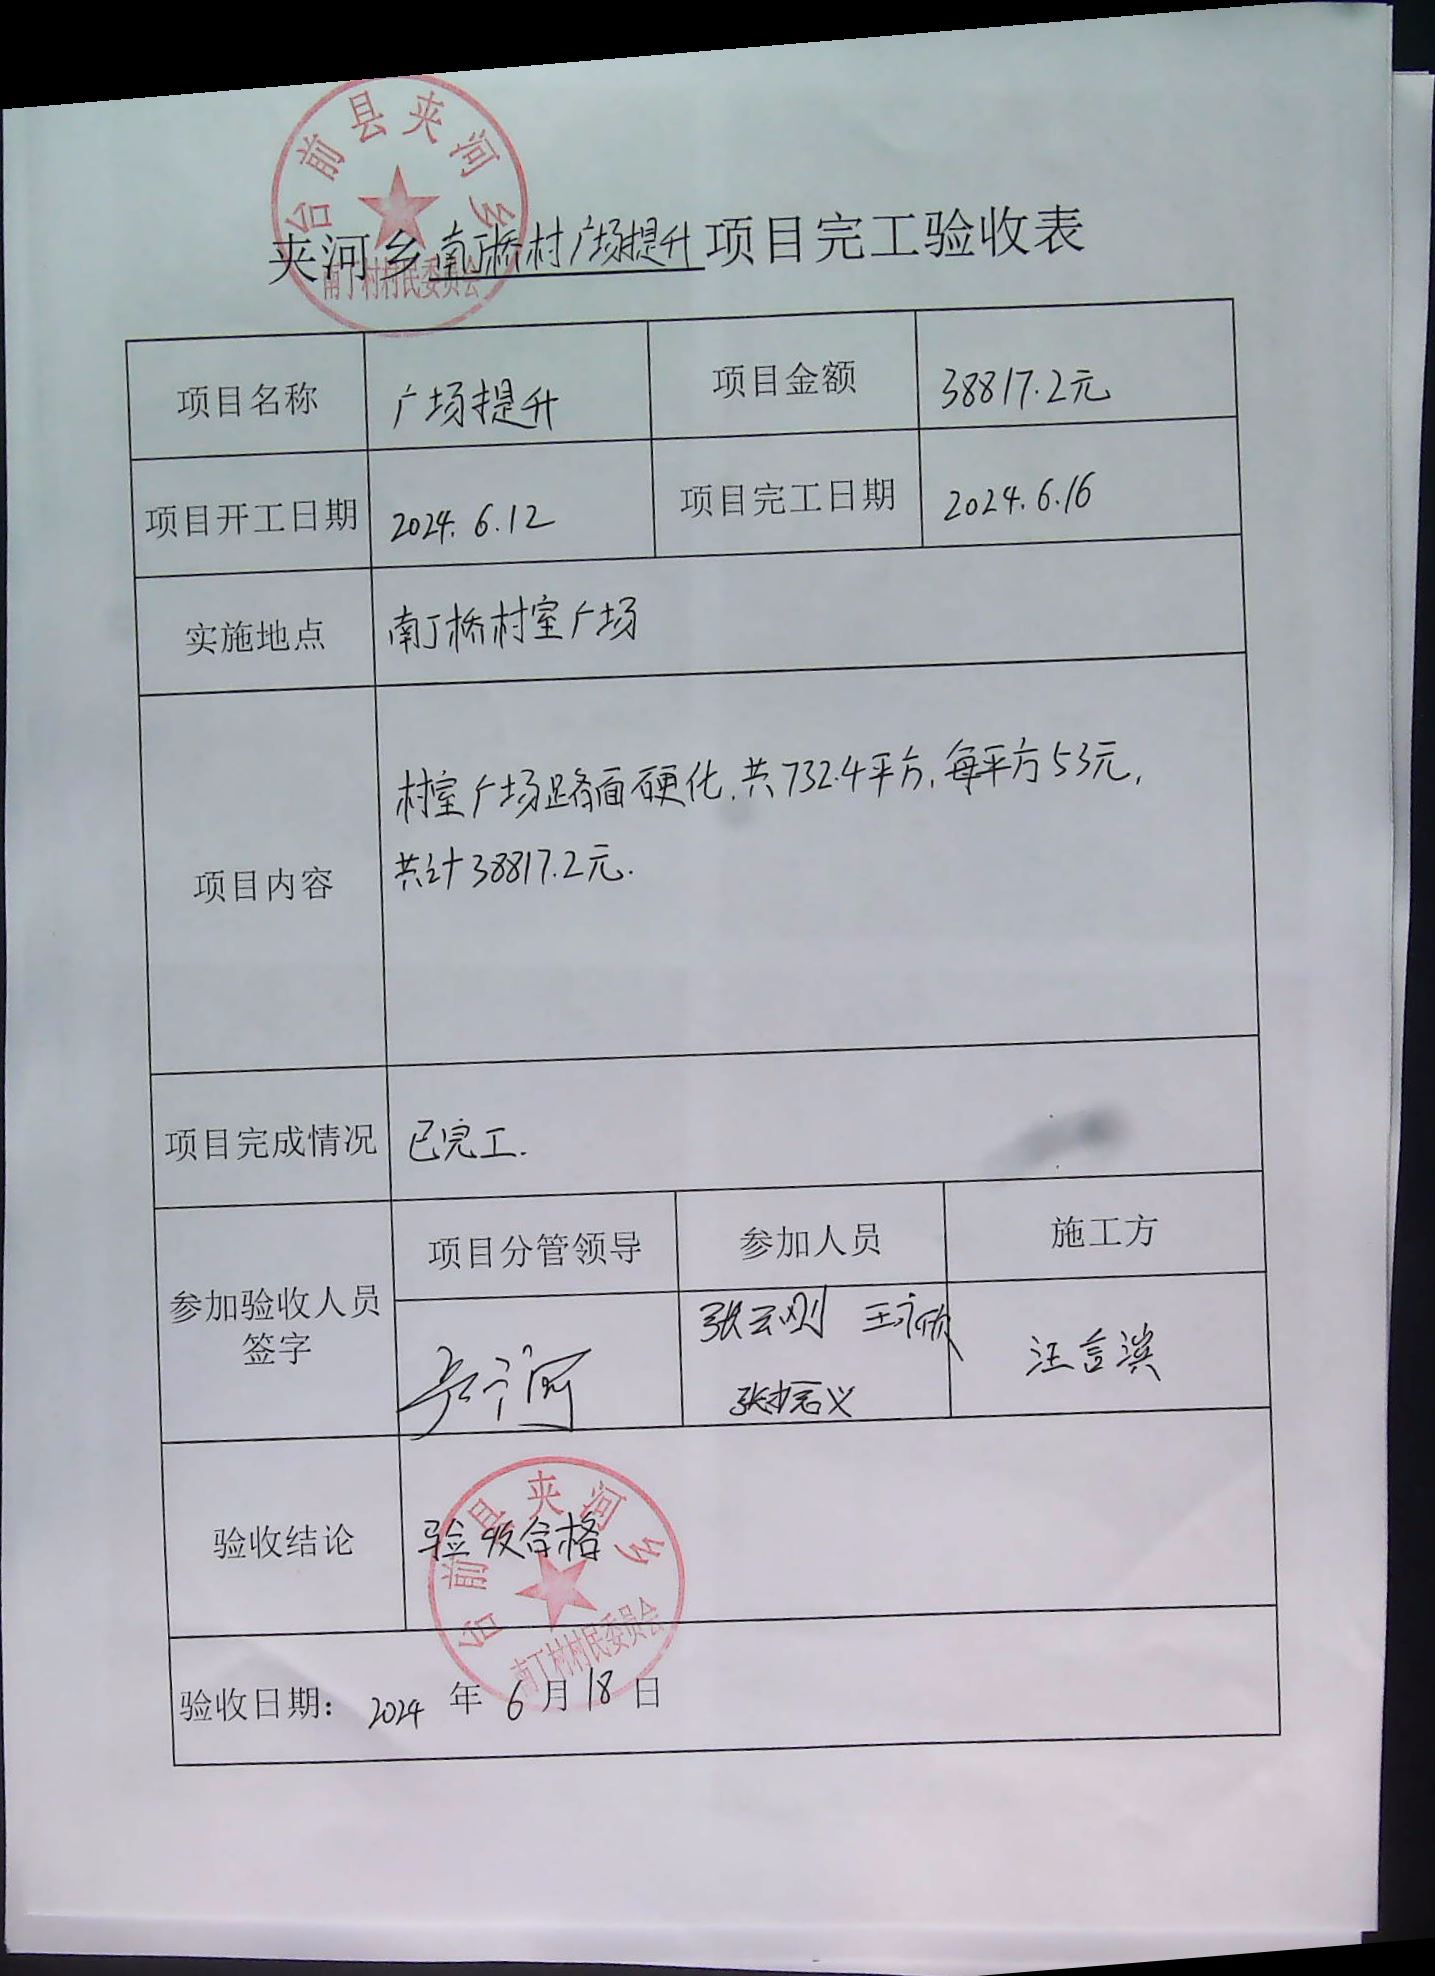 台前县夹河乡
南丁村村民委员会
夹河乡南丁桥村广场提升项目完工验收表
项目名称 广场提升 项目金额 38817.2元
项目开工日期 2024.6.12 项目完工日期 2024.6.16
实施地点 南丁桥村室广场
项目内容 村室广场路面硬化,共732.4平方,每平方53元,
共计38817.2元.
项目完成情况 已完工.
参加验收人员
签字
项目分管领导 参加人员 施工方
张云刚
汪言滨
验收结论 验收合格
台前县夹河乡
南丁村村民委员会
验收日期: 2024 年 6 月 18 日